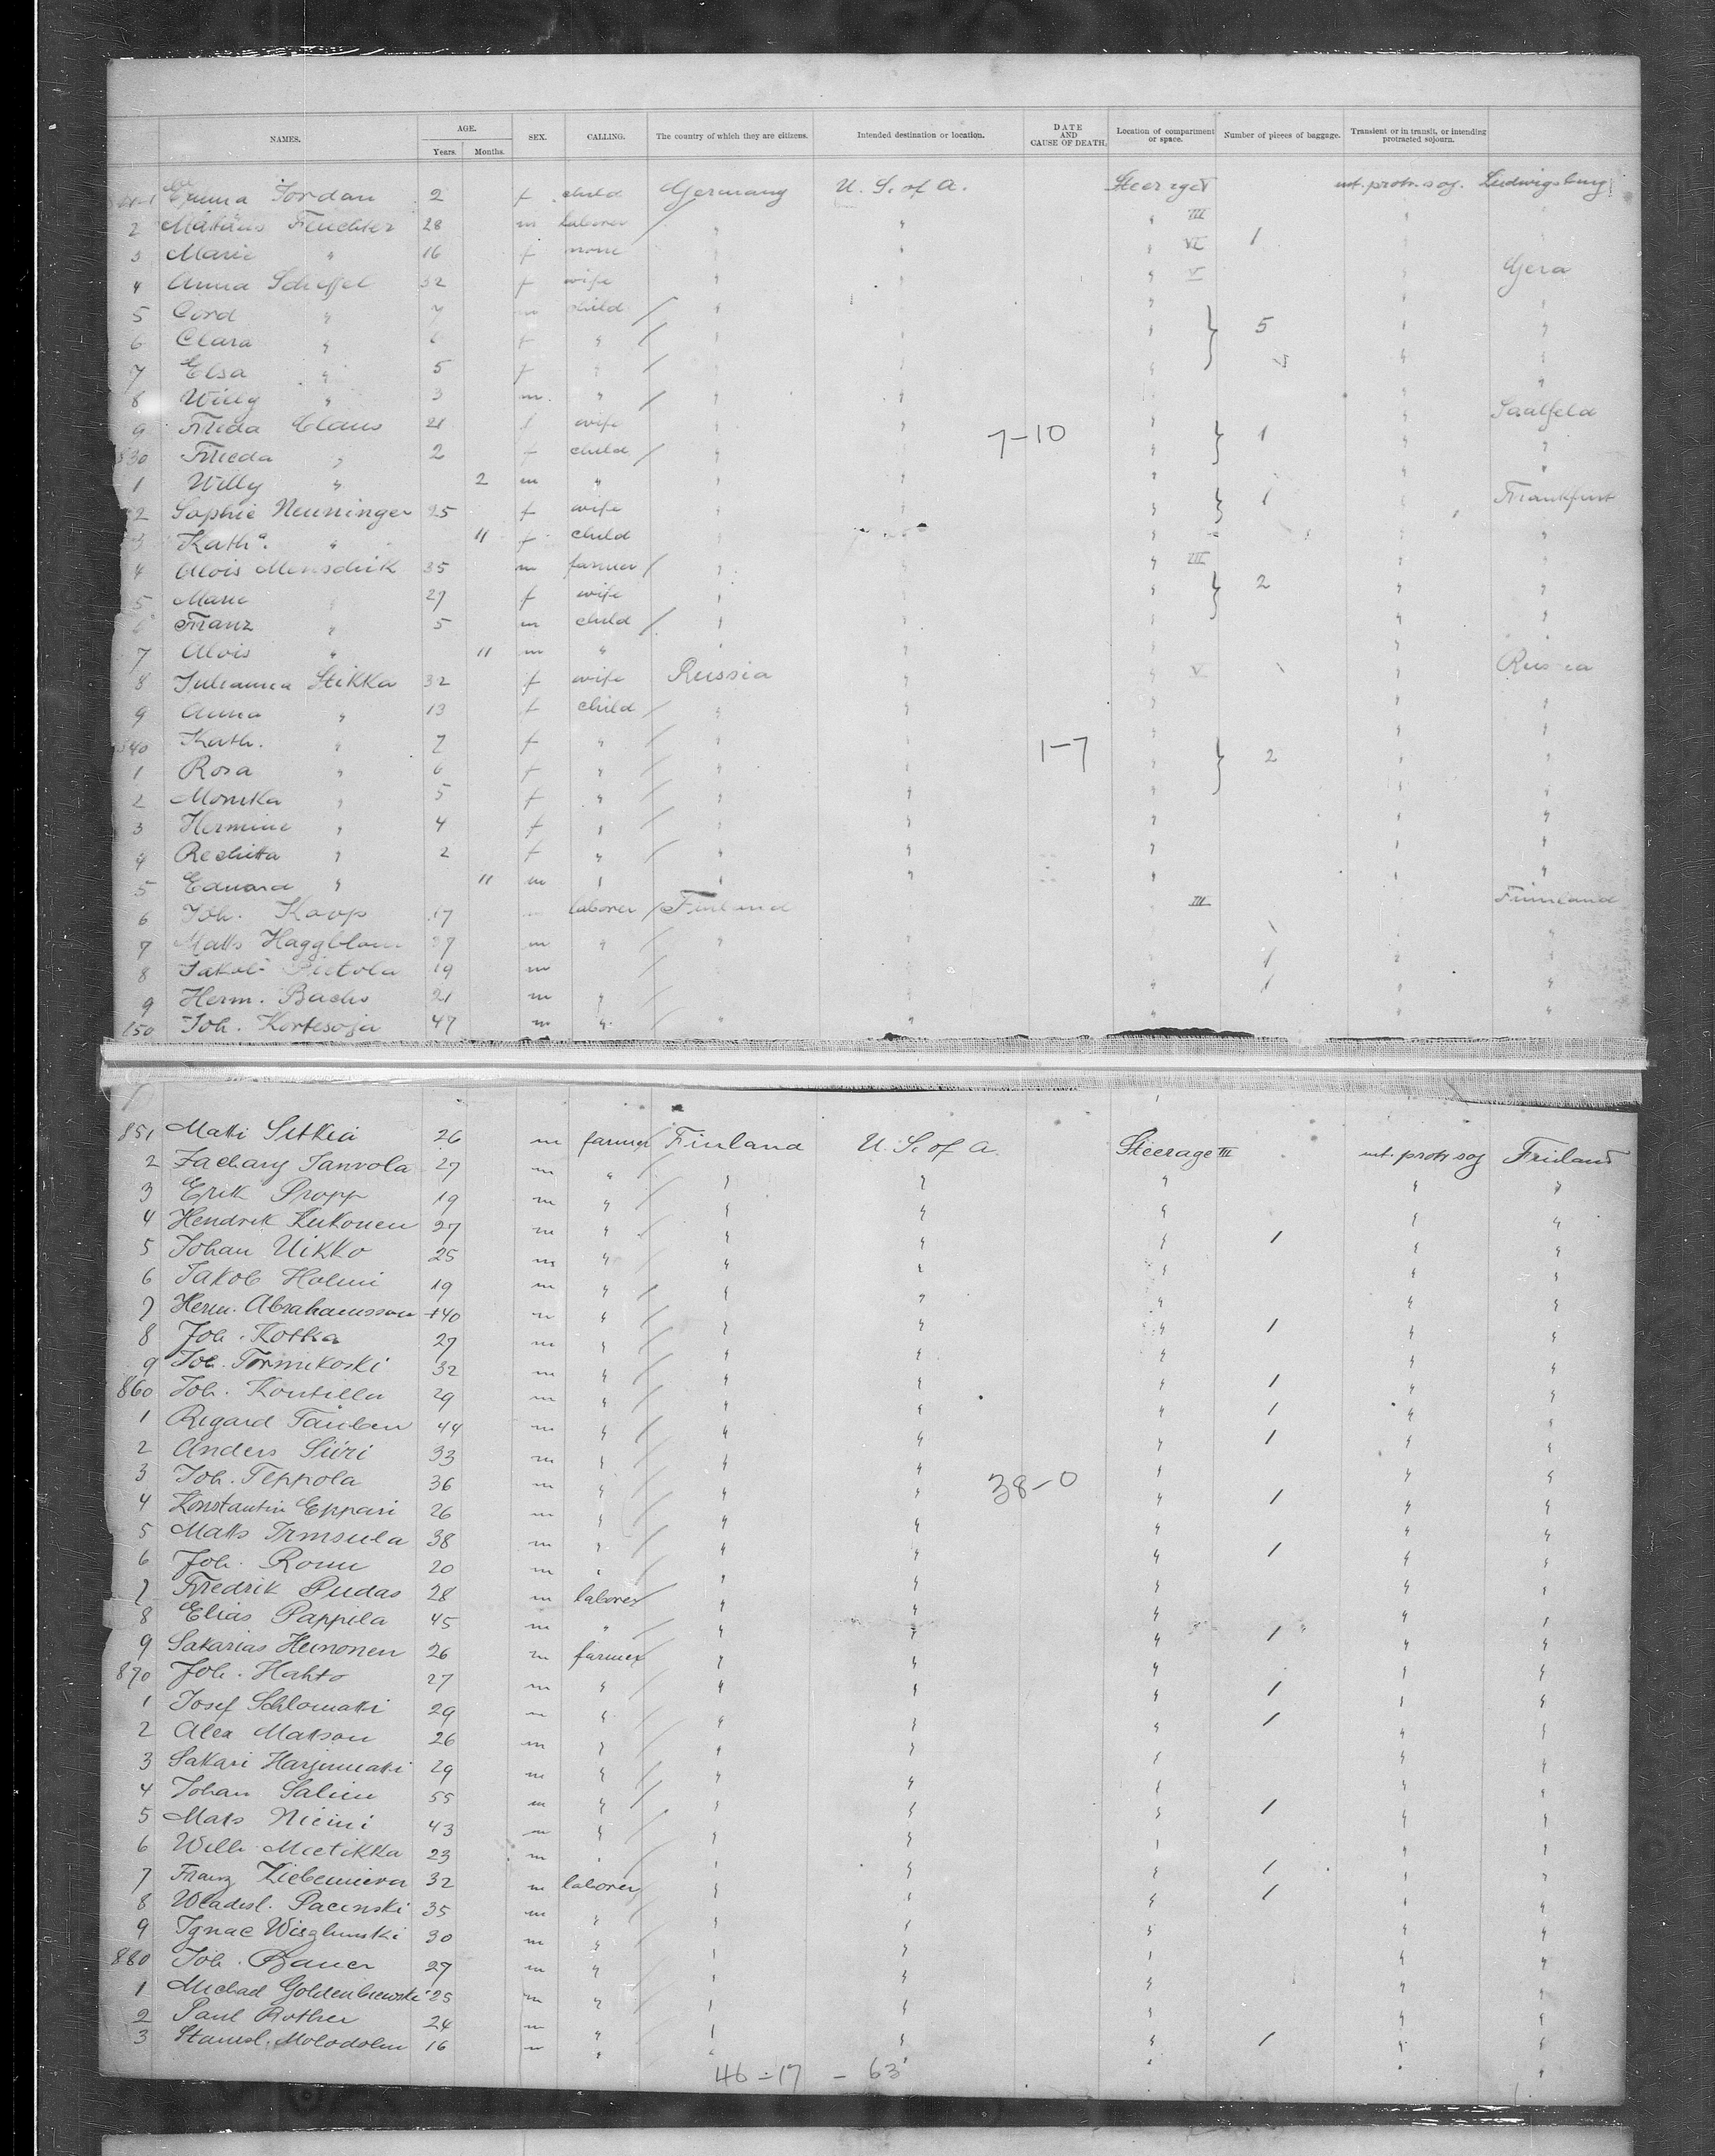 NAMES. AGE. Years. Months. SEX. CALLING. The country of which they are citizens. Intended destination or location. DATE AND CAUSE OF DEATH. Location of compartment or space. Number of pieces of baggage. Transient or in transit, or intending protracted sojourn.
Emma Jordan 2 f child Germany U. S. of A. Steerage V int. protr. soj. Ludwigsburg
2 Feuchter 28 m laborer / " " " III "
3 Marie " 16 f none " " " VI 1 "
4 Anna Scheffel 32 f wife " " " V " Gera
5 Cord " 7 m child / " " " " "
6 Clara " 6 f " / " " " 5 " "
7 Elsa " 5 f " / " " " " "
8 Willy " 3 m " / " " " " "
9 Frieda Claus 21 f wife " " " " Saalfeld
830 Frieda " 2 f child / " 7-10 " 1 " "
1 Willy " 2 m " " " " " "
2 Sophie Neuninger 25 f wife " " " 1 " Frankfurt
3 Kath. " 11 f child " " " " "
4 Alois Menschik 35 m farmer / " " " III "
5 Marie " 27 f wife " " " 2 " "
6 Franz " 5 m child / " " " " "
7 Alois " 11 m " " " " " "
8 Julianna Stikka 32 f wife Russia " " V " Russia
9 Anna " 13 f child / " " " " "
840 Kath. " 7 f " / " " " " "
1 Rosa " 6 f " / " " 1-7 " 2 " "
2 Monika " 5 f " / " " " " "
3 Hermine " 4 f " / " " " " "
4 Rechitta " 2 f " / " " " " "
5 Eduard " 11 m " " " " " "
6 Joh. Kaup 17 laborer / Finland III Finnland
7 Matts Haggblom 37 m " / " " " "
8 Jakob 19 m / 1 " "
9 Herm. Bachs 21 m " / " " 1 " "
850 Joh. Kortesoja 47 m " / " " " " "
851 Matti Sitkia 26 m farmer / Finland U. S. of A. Steerage III int. protr soj Finland
2 Zachary Janvola 27 m " / " " " " "
3 Erik Propp 19 m " / " " " " "
4 Hendrik Kukonen 27 m " / " " " 1 " "
5 Johan Uikko 25 m " / " " " " "
6 Jakob Holmi 19 m " / " " " " "
7 Herm. Abrahamsson 40 m " / " " " 1 " "
8 Joh. Kotka 27 m " / " " " " "
9 Joh. Tormikoski 32 m " / " " " 1 " "
860 Joh. Kontilla 29 m " / " " " 1 " "
1 Rigard 44 m " / " " " 1 " "
2 Anders Siiri 33 m " / " " " " "
3 Joh. Teppola 36 m " / " " 38-0 " 1 " "
4 Konstantin Eppari 26 m " / " " " " "
5 Matts 38 m " / " " " 1 " "
6 Joh. 20 m " / " " " " "
7 Fredrik Pudas 28 m laborer / " " " " "
8 Elias Pappila 45 m " / " " " 1 " "
9 Sakarias Heinonen 26 m farmer / " " " " "
870 Joh. Hahto 27 m " / " " " 1 " "
1 Josef 29 m " / " " " 1 " "
2 Alex Matson 26 m " / " " " " "
3 Sakari Harjumaki 29 m " / " " " " "
4 Johan Salin 55 m " / " " " 1 " "
5 Mats Niemi 43 m " / " " " " "
6 Willi Mietikka 23 m " / " " " 1 " "
7 Franz 32 m laborer / " " " 1 " "
8 Wladisl. Pacinski 35 m " / " " " " "
9 Ignac 30 m " / " " " " "
880 Joh. Bauer 27 m " / " " " " "
1 Michael Goldenbiewski 25 m " / " " " " "
2 Paul Rother 24 m " / " " " " "
3 Stanisl. 16 m " " " " 1 " "
46 ÷ 17 - 63